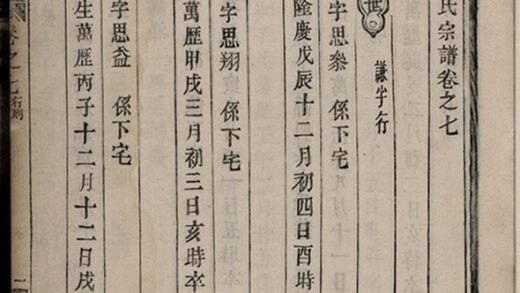 氏宗譜卷之七
世
謙字行
字思叅 係下宅
隆慶戊辰十二月初四日酉時
字思翔 係下宅
萬歷甲戌三月初三日亥時卒
字思益 係下宅
生萬歷丙子十二月十二日戌
卷之七